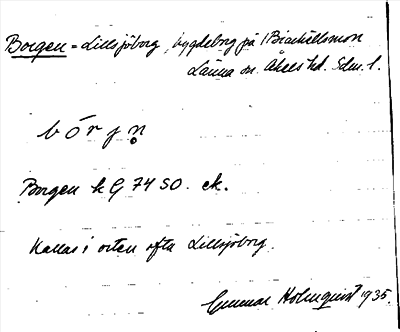 Borgen = Lillsjöborg, bygdeborg på
Länna sn. Åkers hd. Sdm. l.
bórjn̥
Borgen k G 74 SO. ek.
Kallas i orten ofta Lillsjöborg.
Gunnar Holmquist 1935.